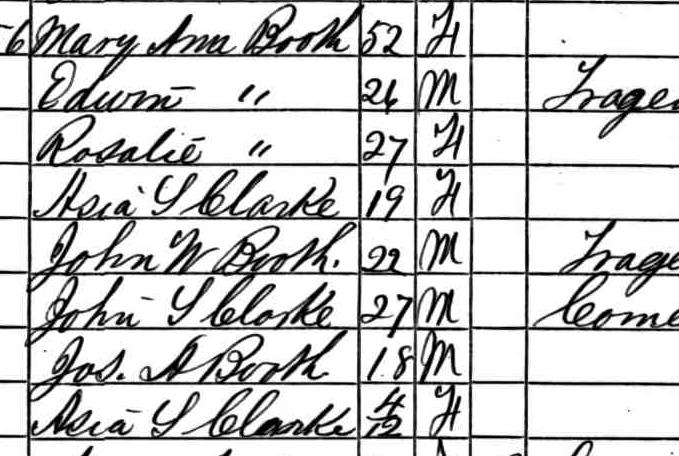 56 Mary Ann Booth 52 F
Edwin " 26 M Trage
Rosalie " 27 F
Asia S Clarke 19 F
John W Booth. 22 M Trage
John S Clarke 27 M Come
Jos. A Booth 18 M
Asia S Clarke 4/12 F